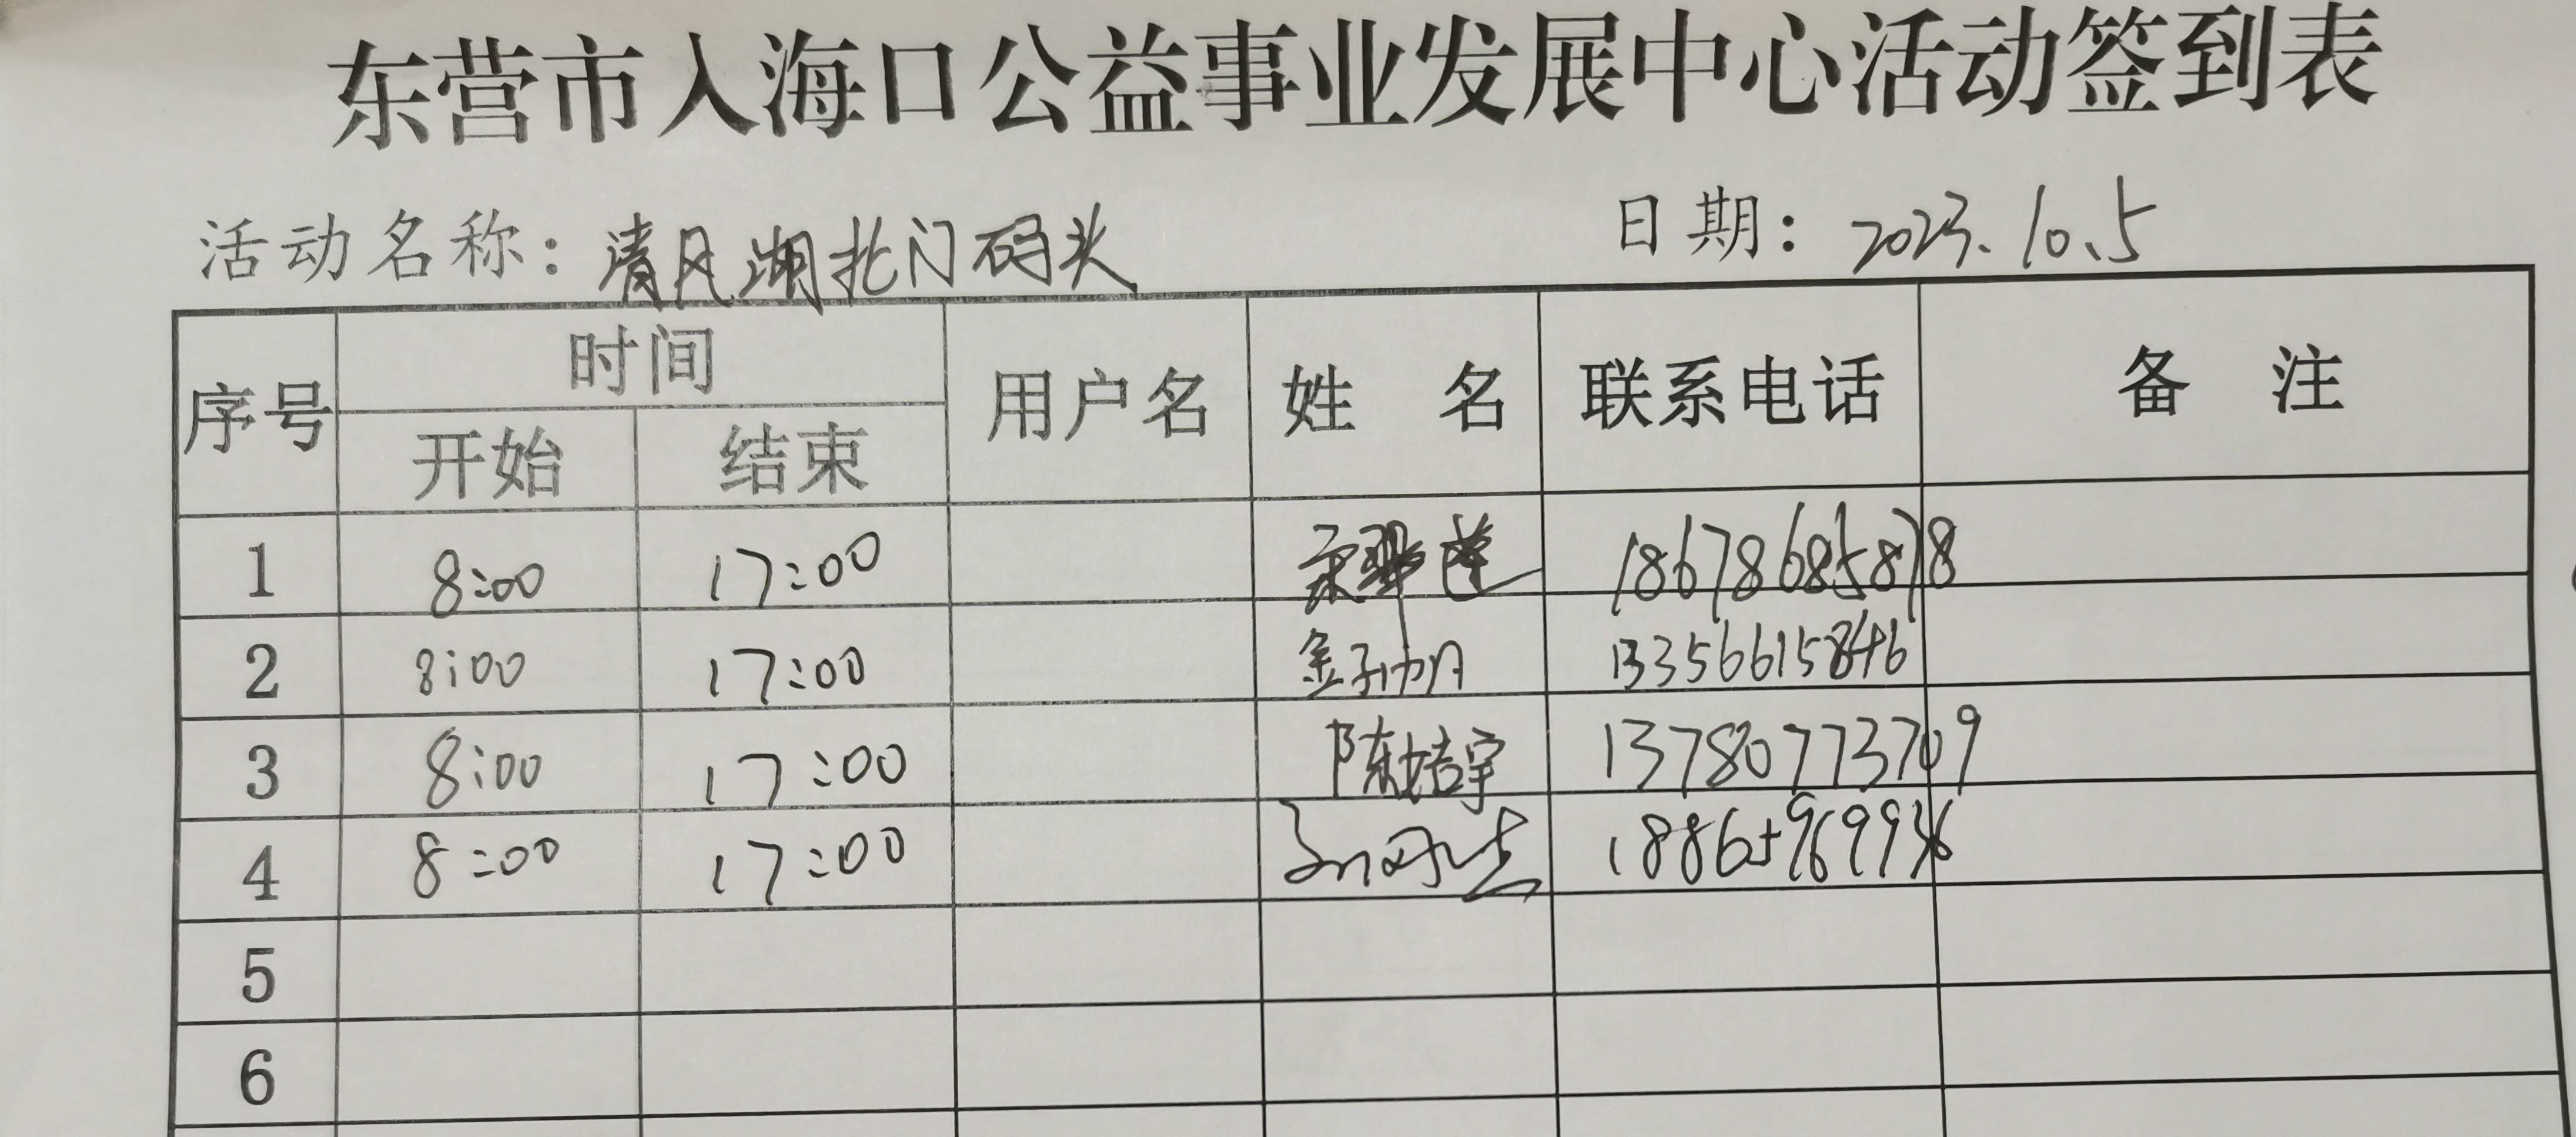 东营市入海口公益事业发展中心活动签到表
活动名称：清风湖北门码头 日期：2023.10.5
序号 时间 用户名 姓 名 联系电话 备 注
开始 结束
1 8:00 17:00 18678685878
2 8:00 17:00 13356615846
3 8:00 17:00 陈婧宇 13780773709
4 8:00 17:00
5
6